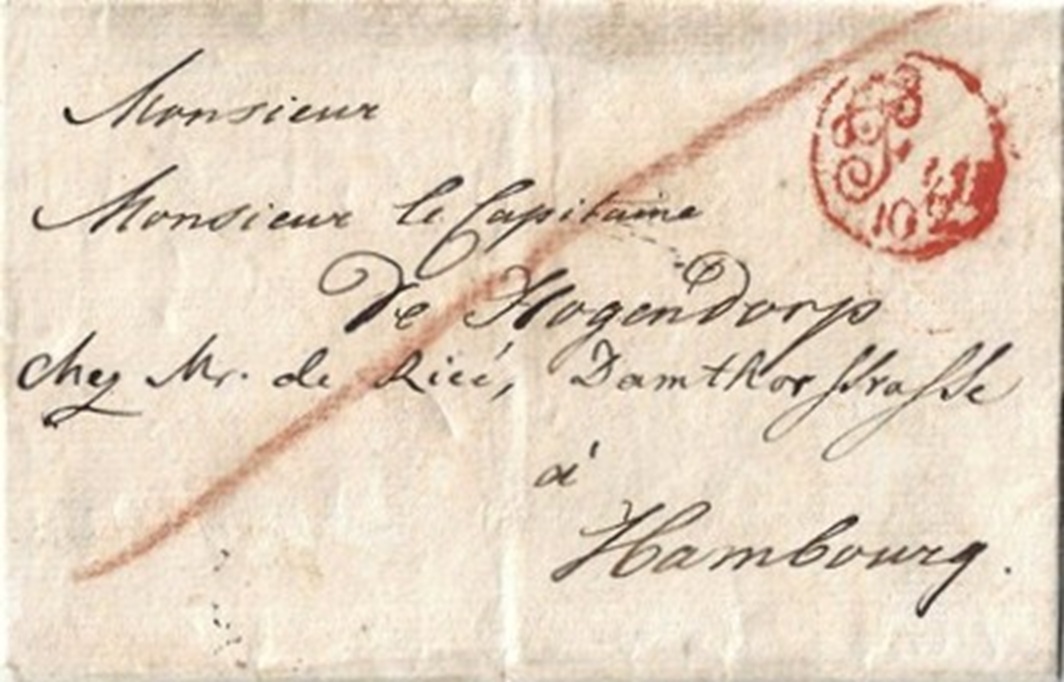 Monsieur
Monsieur le Capitaine
De Hogendorp
chez Mr. de Licé, Damthorstrasse
à
Hambourg.
10